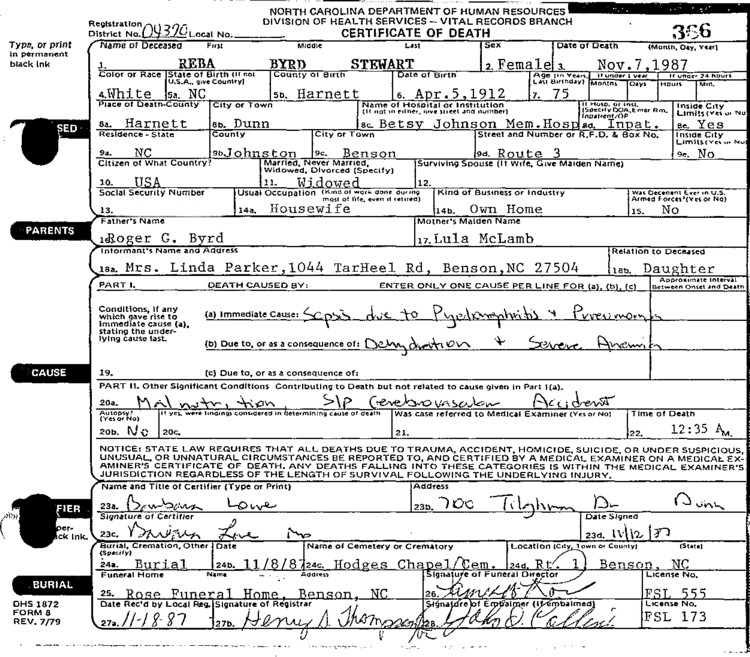 NORTH CAROLINA DEPARTMENT OF HUMAN RESOURCES
Registration DIVISION OF HEALTH SERVICES — VITAL RECORDS BRANCH
District No. 04390 Local No. CERTIFICATE OF DEATH 386
Type, or print in permanent black ink
Name of Deceased First Middle Last Sex Date of Death (Month, Day, Year)
1. REBA BYRD STEWART 2. Female 3. Nov.7,1987
Color or Race State of Birth (If not U.S.A., give Country) County of Birth Date of Birth Age (In Years, Last Birthday) If under 1 year If under 24 hours
Months Days Hours Min.
4. White 5a. NC 5b. Harnett 6. Apr.5,1912 7. 75
Place of Death-County City or Town Name of Hospital or Institution (If not in either, give street and number) If Hosp. or Inst. (Specify DOA, Emer Rm, Inpatient/OP Inside City Limits (Yes or No)
8a. Harnett 8b. Dunn 8c. Betsy Johnson Mem.Hosp 8d. Inpat. 8e. Yes
SED
Residence - State County City or Town Street and Number or R.F.D. & Box No. Inside City Limits (Yes or No)
9a. NC 9b. Johnston 9c. Benson 9d. Route 3 9e. No
Citizen of What Country? Married, Never Married, Widowed, Divorced (Specify) Surviving Spouse (If Wife, Give Maiden Name)
10. USA 11. Widowed 12.
Social Security Number Usual Occupation (Kind of work done during most of life, even if retired) Kind of Business or Industry Was Decedent Ever in U.S. Armed Forces? (Yes or No)
13. 14a. Housewife 14b. Own Home 15. No
PARENTS
Father's Name Mother's Maiden Name
16 Roger G. Byrd 17. Lula McLamb
Informant's Name and Address Relation to Deceased
18a. Mrs. Linda Parker,1044 TarHeel Rd, Benson,NC 27504 18b. Daughter
PART I. DEATH CAUSED BY: ENTER ONLY ONE CAUSE PER LINE FOR (a), (b), (c) Approximate Interval Between Onset and Death
Conditions, if any which gave rise to immediate cause (a), stating the underlying cause last.
(a) Immediate Cause: Sepsis due to Pyelonephritis + Pneumonia
(b) Due to, or as a consequence of: Dehydration + Severe Anemia
CAUSE
19. (c) Due to, or as a consequence of:
PART II. Other Significant Conditions Contributing to Death but not related to cause given in Part I(a).
20a. Malnutrition, S/P Cerebrovascular Accident
Autopsy? (Yes or No) If yes, were findings considered in determining cause of death Was case referred to Medical Examiner (Yes or No) Time of Death
20b. No 20c. 21. 22. 12:35 AM.
NOTICE: STATE LAW REQUIRES THAT ALL DEATHS DUE TO TRAUMA, ACCIDENT, HOMICIDE, SUICIDE, OR UNDER SUSPICIOUS,
UNUSUAL, OR UNNATURAL CIRCUMSTANCES BE REPORTED TO, AND CERTIFIED BY A MEDICAL EXAMINER ON A MEDICAL EX-
AMINER'S CERTIFICATE OF DEATH. ANY DEATHS FALLING INTO THESE CATEGORIES IS WITHIN THE MEDICAL EXAMINER'S
JURISDICTION REGARDLESS OF THE LENGTH OF SURVIVAL FOLLOWING THE UNDERLYING INJURY.
Name and Title of Certifier (Type or Print) Address
FIER
23a. Barbara Lowe 23b. 700 Tilghman Dr Dunn
per-
ck ink.
Signature of Certifier Date Signed
23c. Barbara Lowe MD 23d. 11/12/87
Burial, Cremation, Other (Specify) Date Name of Cemetery or Crematory Location (City, Town or County) (State)
24a. Burial 24b. 11/8/87 24c. Hodges Chapel/Cem. 24d. Rt. 1 Benson, NC
BURIAL
Funeral Home Name Address Signature of Funeral Director License No.
25. Rose Funeral Home, Benson, NC 26. FSL 555
DHS 1872
FORM 8
REV. 7/79
Date Rec'd by Local Reg. Signature of Registrar Signature of Embalmer (If embalmed) License No.
27a. 11-18-87 27b. Henry S. Thompson 28. John O. FSL 173